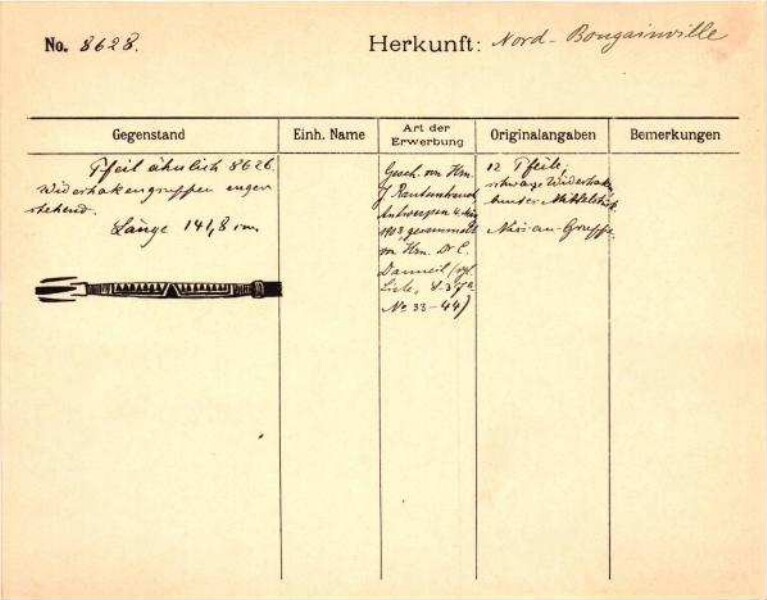 No. 8628.
Herkunft: Nord-Bougainville
Gegenstand
Einh. Name
Art der
Erwerbung
Originalangaben
Bemerkungen
Pfeil ähnlich 8626.
Widerhakengruppen enger
stehend.
Länge 141,8 cm
Gesch. von Hrn.
J Rautenstrauch
Antwerpen
1903 gesammelt
von Hrn. Dr C.
Danneil (vgl.
Liste,
No 33-44)
12 Pfeile,
schwarze Widerhak
bunter Mittelstück.